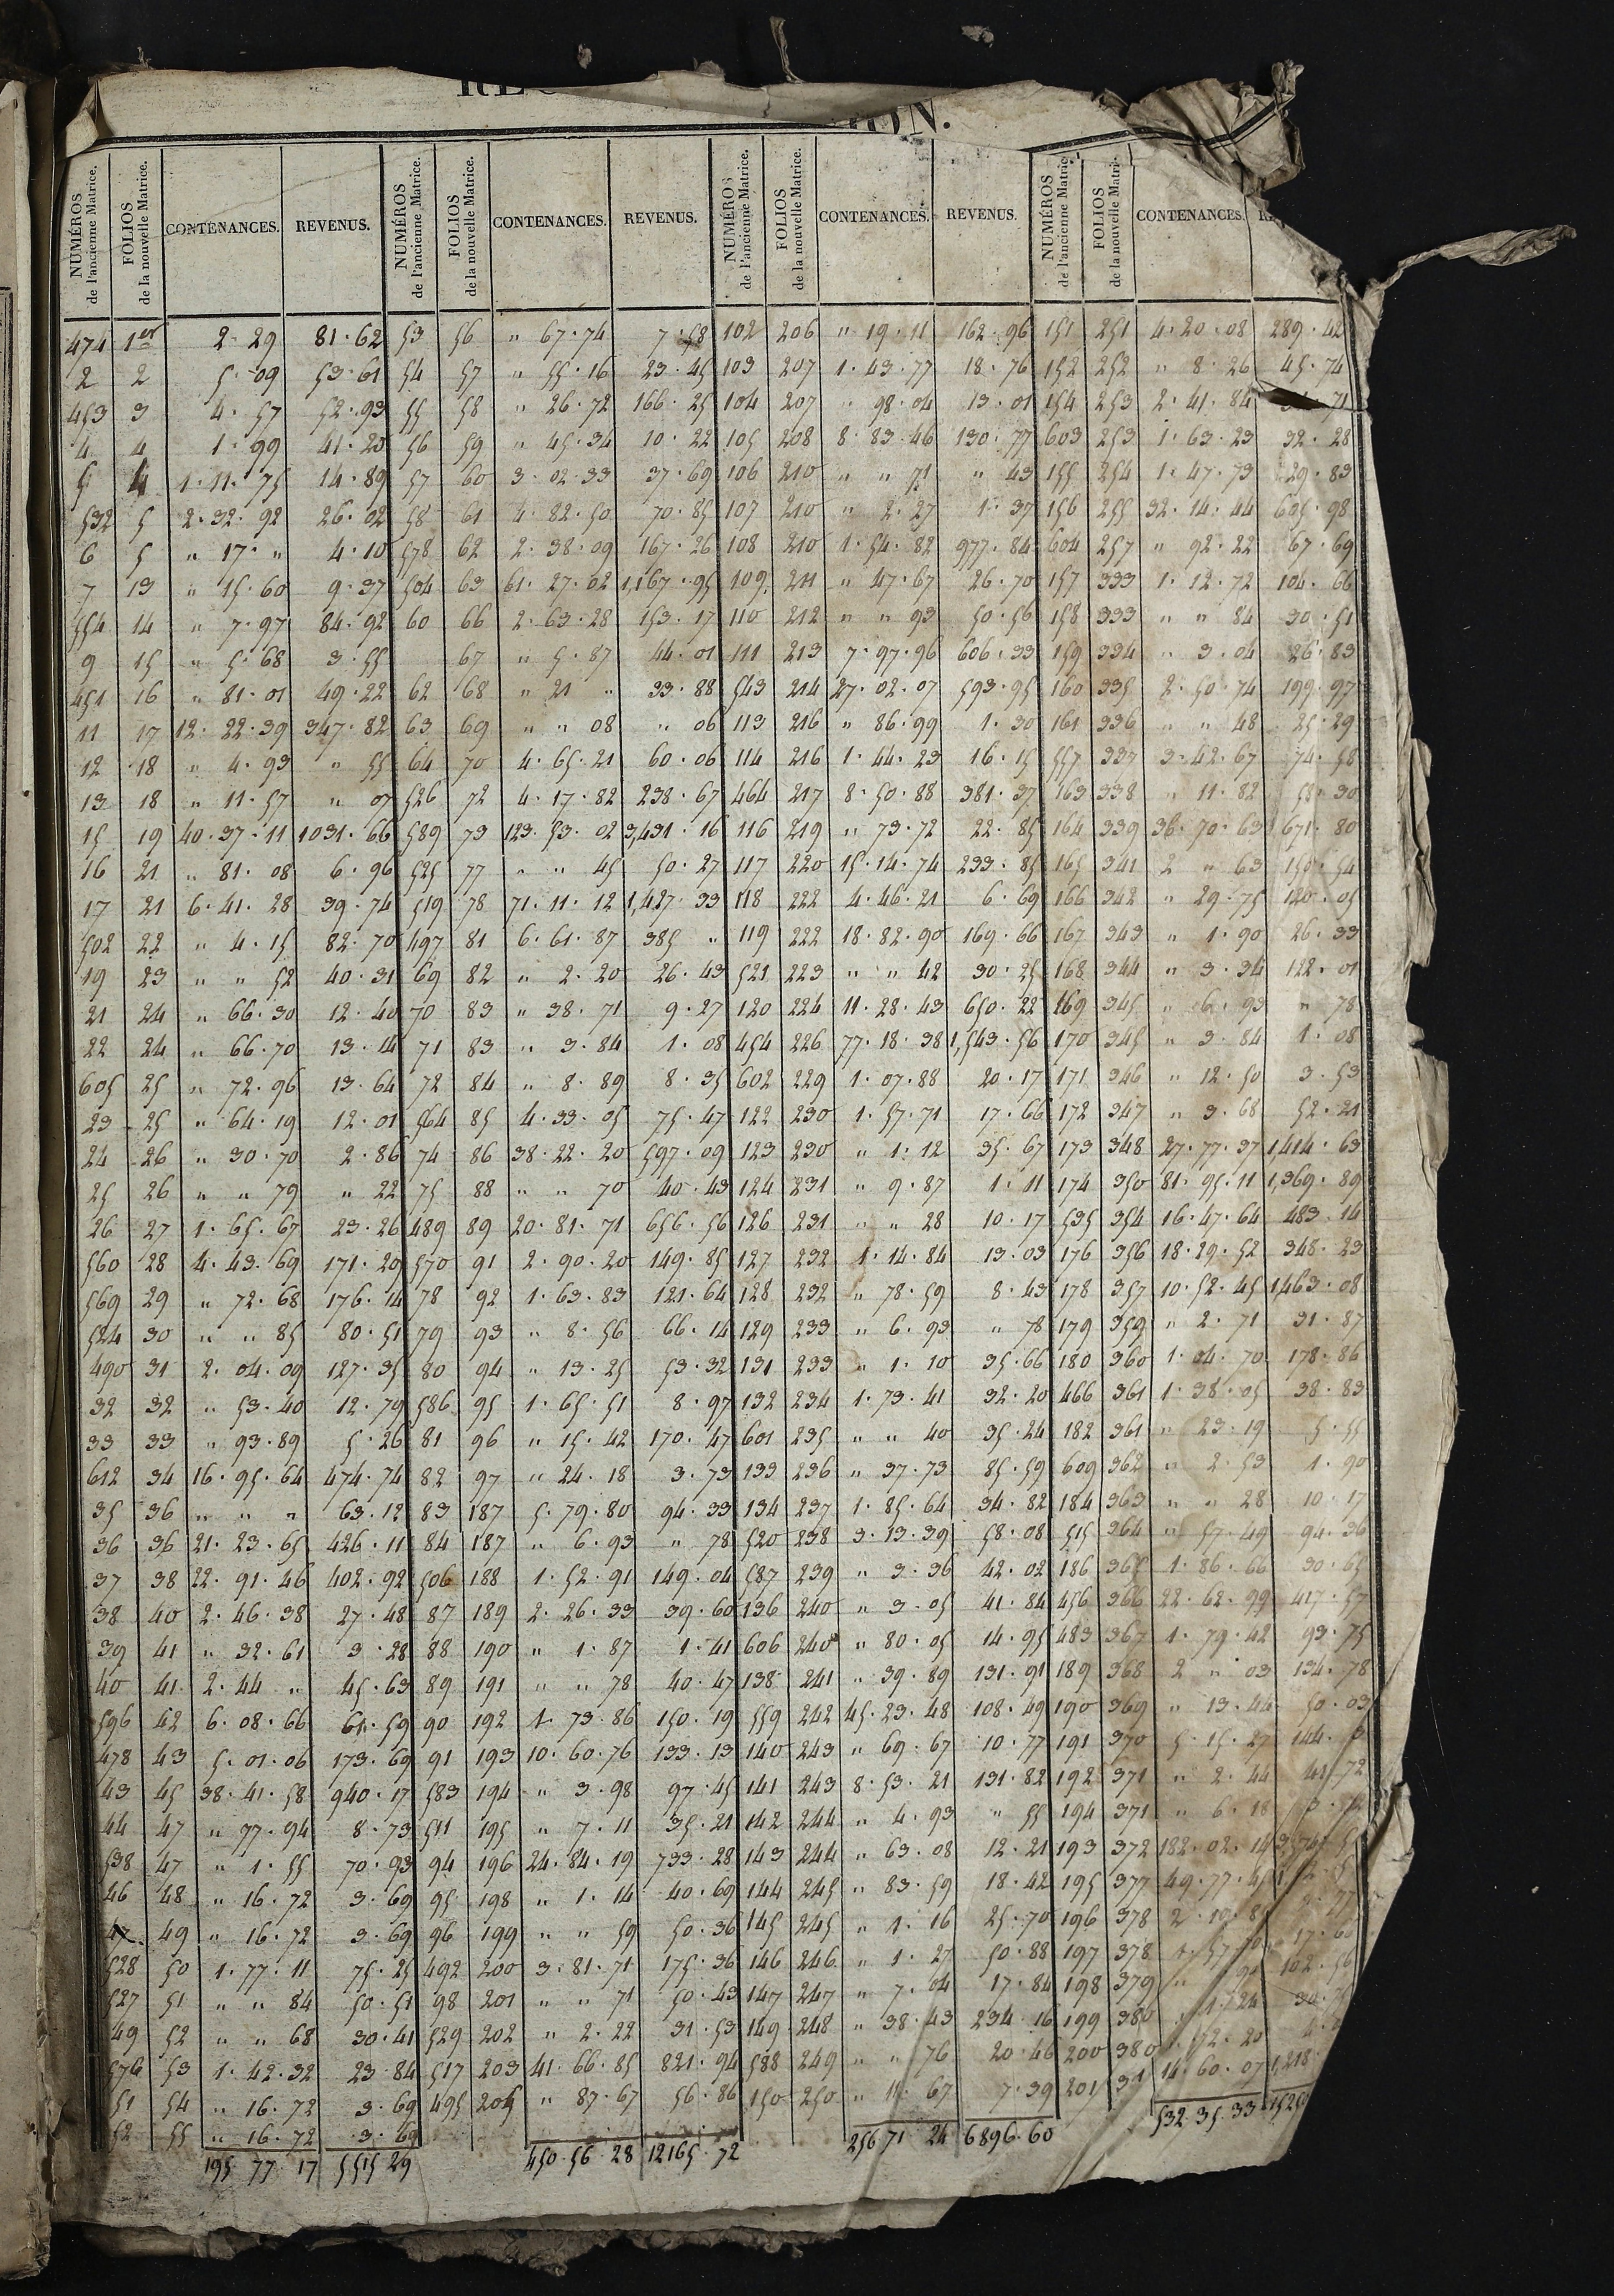 NUMÉROS de l'ancienne Matrice. FOLIOS de la nouvelle Matrice. CONTENANCES. REVENUS. NUMÉROS de l'ancienne Matrice. FOLIOS de la nouvelle Matrice. CONTENANCES. REVENUS. NUMÉROS de l'ancienne Matrice. FOLIOS de la nouvelle Matrice. CONTENANCES. REVENUS. NUMÉROS de l'ancienne Matrice. FOLIOS de la nouvelle Matrice. CONTENANCES.
474 1er 2.29 81.62 53 56 " 67.74 7.58 102 206 " 19.11 162.96 151 251 4.20.08 289.42
2 2 5.09 53.61 54 57 " 55.16 23.45 103 207 1.43.77 18.76 152 252 " 8.26 45.74
453 3 4.57 52.93 55 58 " 26.72 166.25 104 207 " 98.04 13.01 154 253 2.41.84 71
4 4 1.99 41.20 56 59 " 45.34 10.22 105 208 8.83.46 130.77 603 253 1.63.23 32.28
5 4 1.11.75 14.89 57 60 3.02.33 37.69 106 210 " " 71 " 43 155 254 1.47.73 29.83
532 5 2.32.92 26.02 58 61 4.82.50 70.85 107 210 " 2.27 1.37 156 255 32.14.44 605.98
6 5 " 17. " 4.10 578 62 2.38.09 167.26 108 210 1.54.82 977.84 604 257 " 92.22 67.69
7 13 " 15.60 9.37 504 63 61.27.02 1,167.95 109 211 " 47.67 26.70 157 333 1.12.72 104.66
554 14 " 7.97 84.92 60 66 2.63.28 153.17 110 212 " " 93 50.56 158 333 " " 84 30.51
9 15 " 5.68 3.55 67 " 5.87 44.01 111 213 7.97.96 606.33 159 334 " 3.04 26.83
451 16 " 81.01 49.22 62 68 " 21 " 33.88 543 214 27.02.07 593.95 160 335 2.50.74 199.97
11 17 12.22.39 347.82 63 69 " " 08 " 06 113 216 " 86.99 1.30 161 336 " " 48 25.29
12 18 " 4.93 " 55 64 70 4.65.21 60.06 114 216 1.44.23 16.15 557 337 3.42.67 74.58
13 18 " 11.57 " 07 526 72 4.17.82 238.67 464 217 8.50.88 381.37 163 338 " 11.82 58.30
15 19 40.37.11 1031.66 589 73 123.53.02 3,431.16 116 219 " 73.72 22.85 164 339 36.70.63 671.80
16 21 " 81.08 6.96 525 77 " " 45 50.27 117 220 15.14.74 233.85 165 341 2 " 63 150.54
17 21 6.41.28 39.74 519 78 71.11.12 1,427.33 118 222 4.46.21 6.69 166 342 " 29.75 120.05
502 22 " 4.15 82.70 497 81 6.61.87 385 " 119 222 18.82.90 169.66 167 343 " 1.90 26.33
19 23 " " 52 40.31 69 82 " 2.20 26.43 521 223 " " 42 30.25 168 344 " 3.34 122.01
21 24 " 66.30 12.40 70 83 " 38.71 9.27 120 224 11.28.43 650.22 169 345 " 6.93 " 78
22 24 " 66.70 13.14 71 83 " 3.84 1.08 454 226 77.18.38 1,543.56 170 345 " 3.84 1.08
605 25 " 72.96 13.64 72 84 " 8.89 8.35 602 229 1.07.88 20.17 171 346 " 12.50 3.53
23 25 " 64.19 12.01 564 85 4.33.05 75.47 122 230 1.57.71 17.66 172 347 " 3.68 52.21
24 26 " 30.70 2.86 74 86 38.22.20 597.09 123 230 " 1.12 35.67 173 348 27.77.37 1,414.63
25 26 " " 79 " 22 75 88 " " 70 40.43 124 231 " 9.87 1.11 174 350 81.95.11 1,369.89
26 27 1.65.67 23.26 489 89 20.81.71 656.56 126 231 " " 28 10.17 535 354 16.47.64 483.14
560 28 4.43.69 171.20 570 91 2.90.20 149.85 127 232 1.14.84 13.03 176 356 18.29.52 348.23
569 29 " 72.68 176.14 78 92 1.63.83 121.64 128 232 " 78.59 8.43 178 357 10.52.45 1,463.08
524 30 " " 85 80.51 79 93 " 8.56 66.14 129 233 " 6.93 " 78 179 359 " 2.71 31.87
490 31 2.04.09 127.35 80 94 " 13.25 53.32 131 233 " 1.10 35.66 180 360 1.04.70 178.86
32 32 " 53.40 12.79 586 95 1.65.51 8.97 132 234 1.73.41 32.20 466 361 1.38.05 38.83
33 33 " 93.89 5.26 81 96 " 15.42 170.47 601 235 " " 40 35.24 182 361 " 23.19 5.55
612 34 16.95.64 474.74 82 97 " 24.18 3.73 133 236 " 37.73 85.59 609 362 " 2.53 1.90
35 36 " " " 63.12 83 187 5.79.80 94.33 134 237 1.85.64 34.82 184 363 " " 28 10.17
36 36 21.23.65 426.11 84 187 " 6.93 " 78 520 238 3.13.39 58.08 515 364 " 57.49 94.36
37 38 22.91.46 402.92 506 188 1.52.91 149.04 587 239 " 3.36 42.02 186 365 1.86.66 30.65
38 40 2.46.38 27.48 87 189 2.26.33 39.60 136 240 " 3.05 41.84 456 366 22.62.99 417.57
39 41 " 32.61 3.28 88 190 " 1.87 1.41 606 240 " 80.05 14.95 483 367 1.79.42 93.75
40 41 2.44 " 45.63 89 191 " " 78 40.47 138 241 " 39.89 131.91 189 368 2 " 03 134.78
596 42 6.08.66 61.59 90 192 1.73.86 150.19 559 242 45.23.48 108.49 190 369 " 13.44 50.03
478 43 5.01.06 173.69 91 193 10.60.76 133.13 140 243 " 69.67 10.77 191 370 5.15.27 144.
43 45 38.41.58 940.17 583 194 " 3.98 97.45 141 243 8.53.21 131.82 192 371 " 2.44 41.72
44 47 " 77.94 8.73 511 195 " 7.11 35.21 142 244 " 4.93 " 55 194 371 " 6.18
538 47 " 1.55 70.93 94 196 24.84.19 733.28 143 244 " 63.08 12.21 193 372 182.02.14
46 48 " 16.72 3.69 95 198 " 1.14 40.69 144 245 " 83.59 18.42 195 377 49.77.45
47 49 " 16.72 3.69 96 199 " " 59 50.36 145 245 " 1.16 25.70 196 378 2.10.
528 50 1.77.11 75.25 492 200 3.81.71 175.36 146 246 " 1.27 50.88 197 378 1.57 17.60
527 51 " " 84 50.51 98 201 " " 71 50.43 147 247 " 7.04 17.84 198 379 102.56
49 52 " " 68 30.41 529 202 " 2.22 31.53 149 248 " 38.43 234.16 199 380
576 53 1.42.32 23.84 517 203 41.66.85 821.94 588 249 " " 76 20.46 200 380
51 54 " 16.72 3.69 495 205 " 87.67 56.86 150 250 " 11.67 7.39 201 14.60.07 1,218.
52 55 " 16.72 3.69
195 77.17 5515 29 450.56.28 12165.72 256 71 24 6896.60 532.35.33